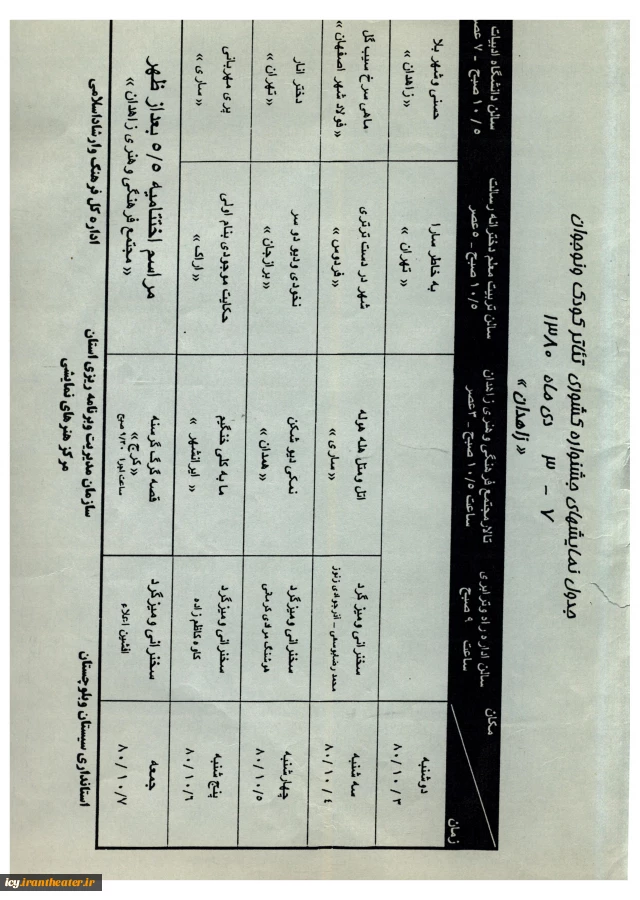 جدول نمایشهای جشنواره کشوری تئاتر کودک و نوجوان
۳ - ۷ دی ماه ۱۳۸۰
« زاهدان »
مکان
زمان
سالن اداره راه و ترابری
ساعت ۹ صبح
تالار مجتمع فرهنگی و هنری زاهدان
ساعت ۱۰/۵ صبح - ۳ عصر
سالن تربیت معلم دخترانه رسالت
۱۰/۵ صبح - ۵ عصر
سالن دانشگاه ادبیات
۱۰/۵ صبح - ۷ عصر
دوشنبه
۸۰/۱۰/۳
به خاطر سارا
« تهران »
حسنی و شهر بلا
« زاهدان »
سه شنبه
۸۰/۱۰/۴
سخنرانی و میز گرد
محمد رضا یوسفی - آذر جوادی زنوز
اتل و متل هله هوله
« ساری »
شهر در دست ترتری
« فردوس »
ماهی سرخ سیب گل
« فولاد شهر اصفهان »
چهارشنبه
۸۰/۱۰/۵
سخنرانی و میزگرد
هوشنگ مرادی کرمانی
نمکی دیو شکن
« همدان »
نخودی و دیو دو سر
« برازجان »
دختر انار
« تهران »
پنج شنبه
۸۰/۱۰/۶
سخنرانی و میزگرد
کاوه کاظم زاده
ما به کلی خنگیم
« ایرانشهر »
حکایت موجودی بنام اولی
« اراک »
پری مهربانی
« ساری »
جمعه
۸۰/۱۰/۷
سخنرانی و میزگرد
افشین اعلاء
قصه گرگ گرسنه
« کرج »
ساعت اجرا ۹/۳۰ صبح
مراسم اختتامیه ۵/۵ بعداز ظهر
« مجتمع فرهنگی و هنری زاهدان »
استانداری سیستان و بلوچستان
سازمان مدیریت و برنامه ریزی استان
مرکز هنرهای نمایشی
اداره کل فرهنگ و ارشاد اسلامی
icy.irantheater.ir